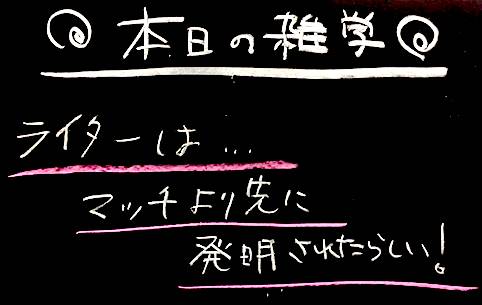 本日の雑学
ライターは...
マッチより先に
発明されたらしい!